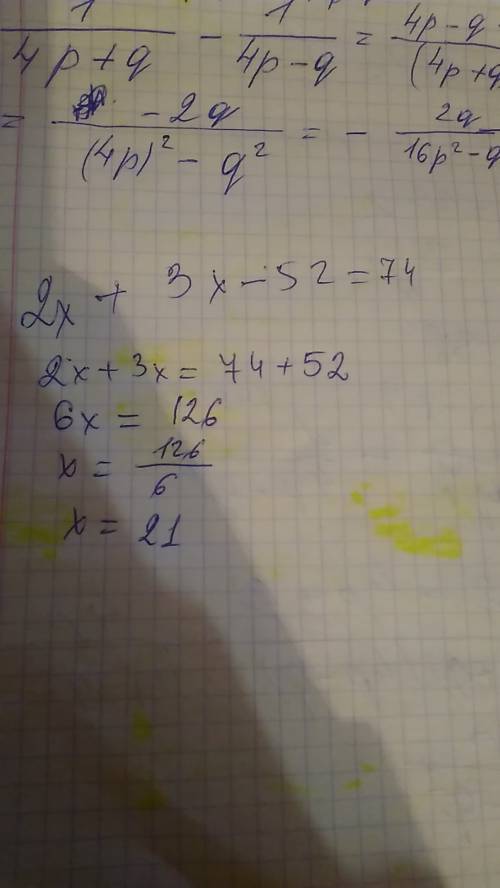 1/(4p+q) - 1/(4p-q) = (4p-q)/((4p+q
= -2q/((4p)² - q²) = - 2q/(16p²-q
2x + 3x - 52 = 74
2x + 3x = 74 + 52
6x = 126
x = 126/6
x = 21